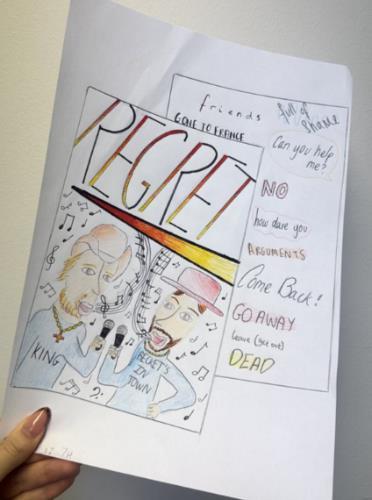 REGRET
KING
BECKET'S
IN
TOWN
friends
full of
shame
GONE TO FRANCE
Can you help
me?
NO
how dare you
ARGUMENTS
Come Back!
GO AWAY
leave (get out)
DEAD